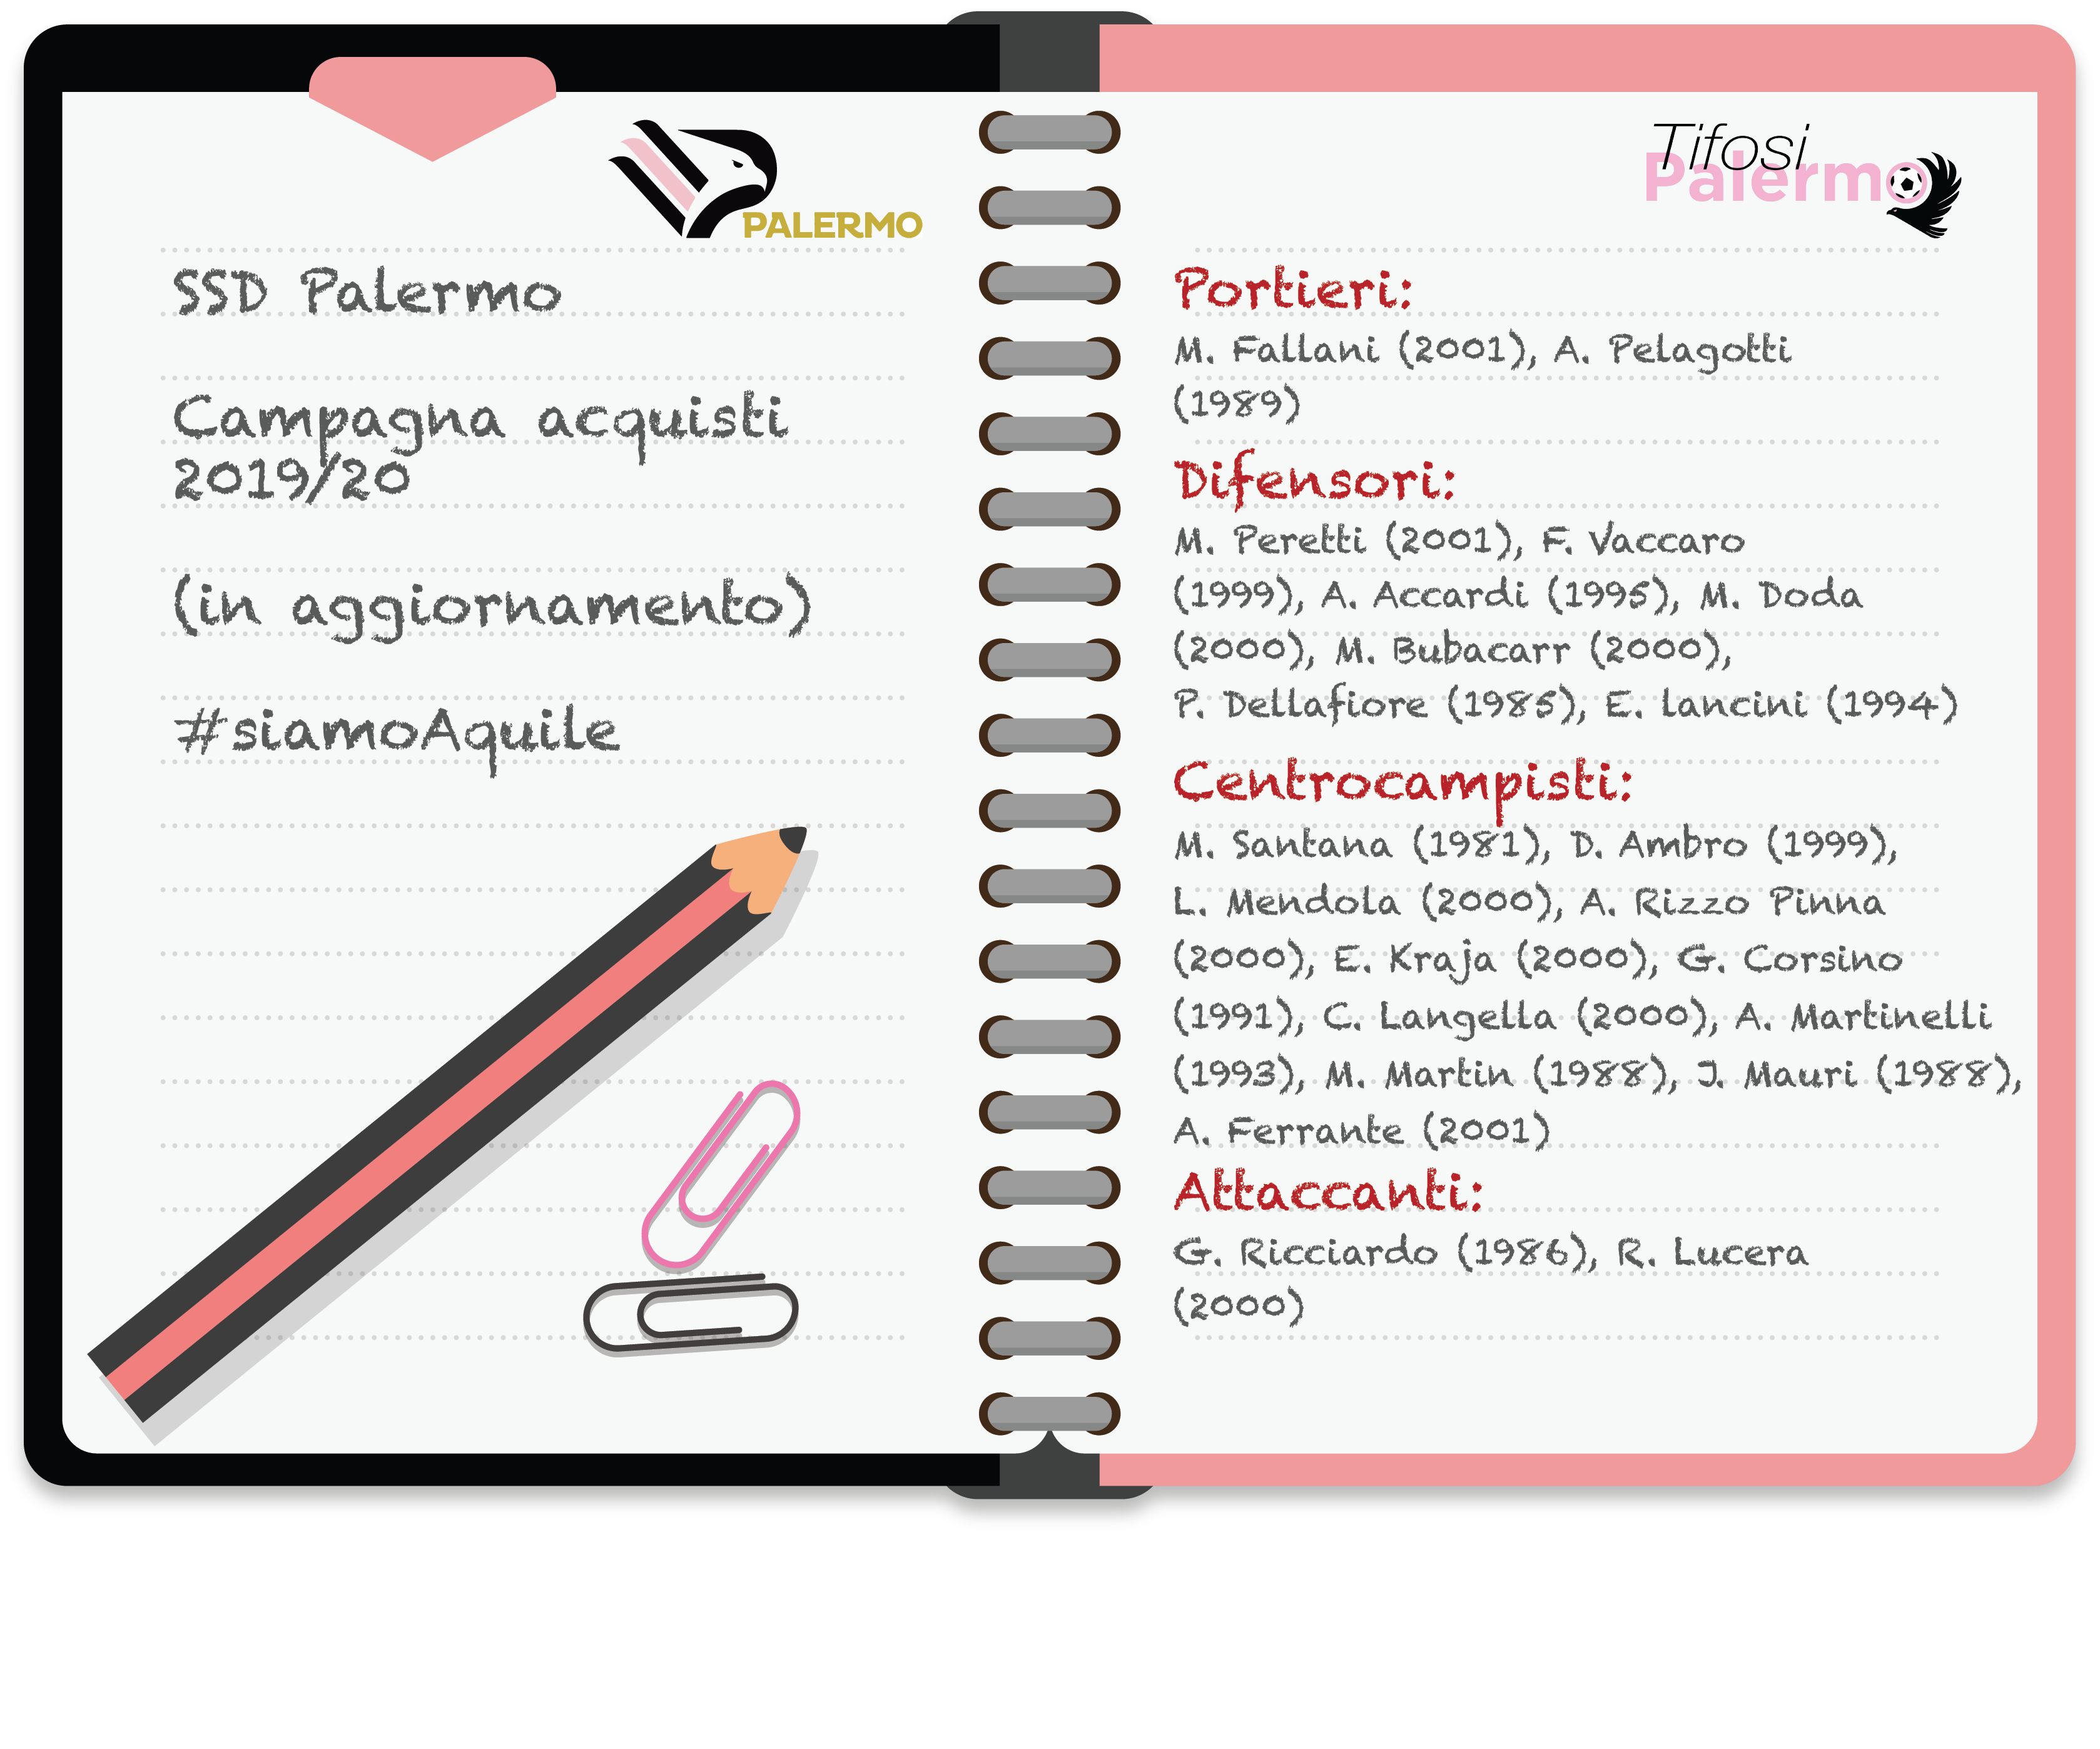 PALERMO
SSD Palermo
Campagna acquisti
2019/20
(in aggiornamento)
#siamoAquile
Tifosi
Palermo
Portieri:
M. Fallani (2001), A. Pelagotti
(1989)
Difensori:
M. Peretti (2001), F. Vaccaro
(1999), A. Accardi (1995), M. Doda
(2000), M. Bubacarr (2000),
P. Dellafiore (1985), E. lancini (1994)
Centrocampisti:
M. Santana (1981), D. Ambro (1999),
L. Mendola (2000), A. Rizzo Pinna
(2000), E. Kraja (2000), G. Corsino
(1991), C. Langella (2000), A. Martinelli
(1993), M. Martin (1988), J. Mauri (1988),
A. Ferrante (2001)
Attaccanti:
G. Ricciardo (1986), R. Lucera
(2000)